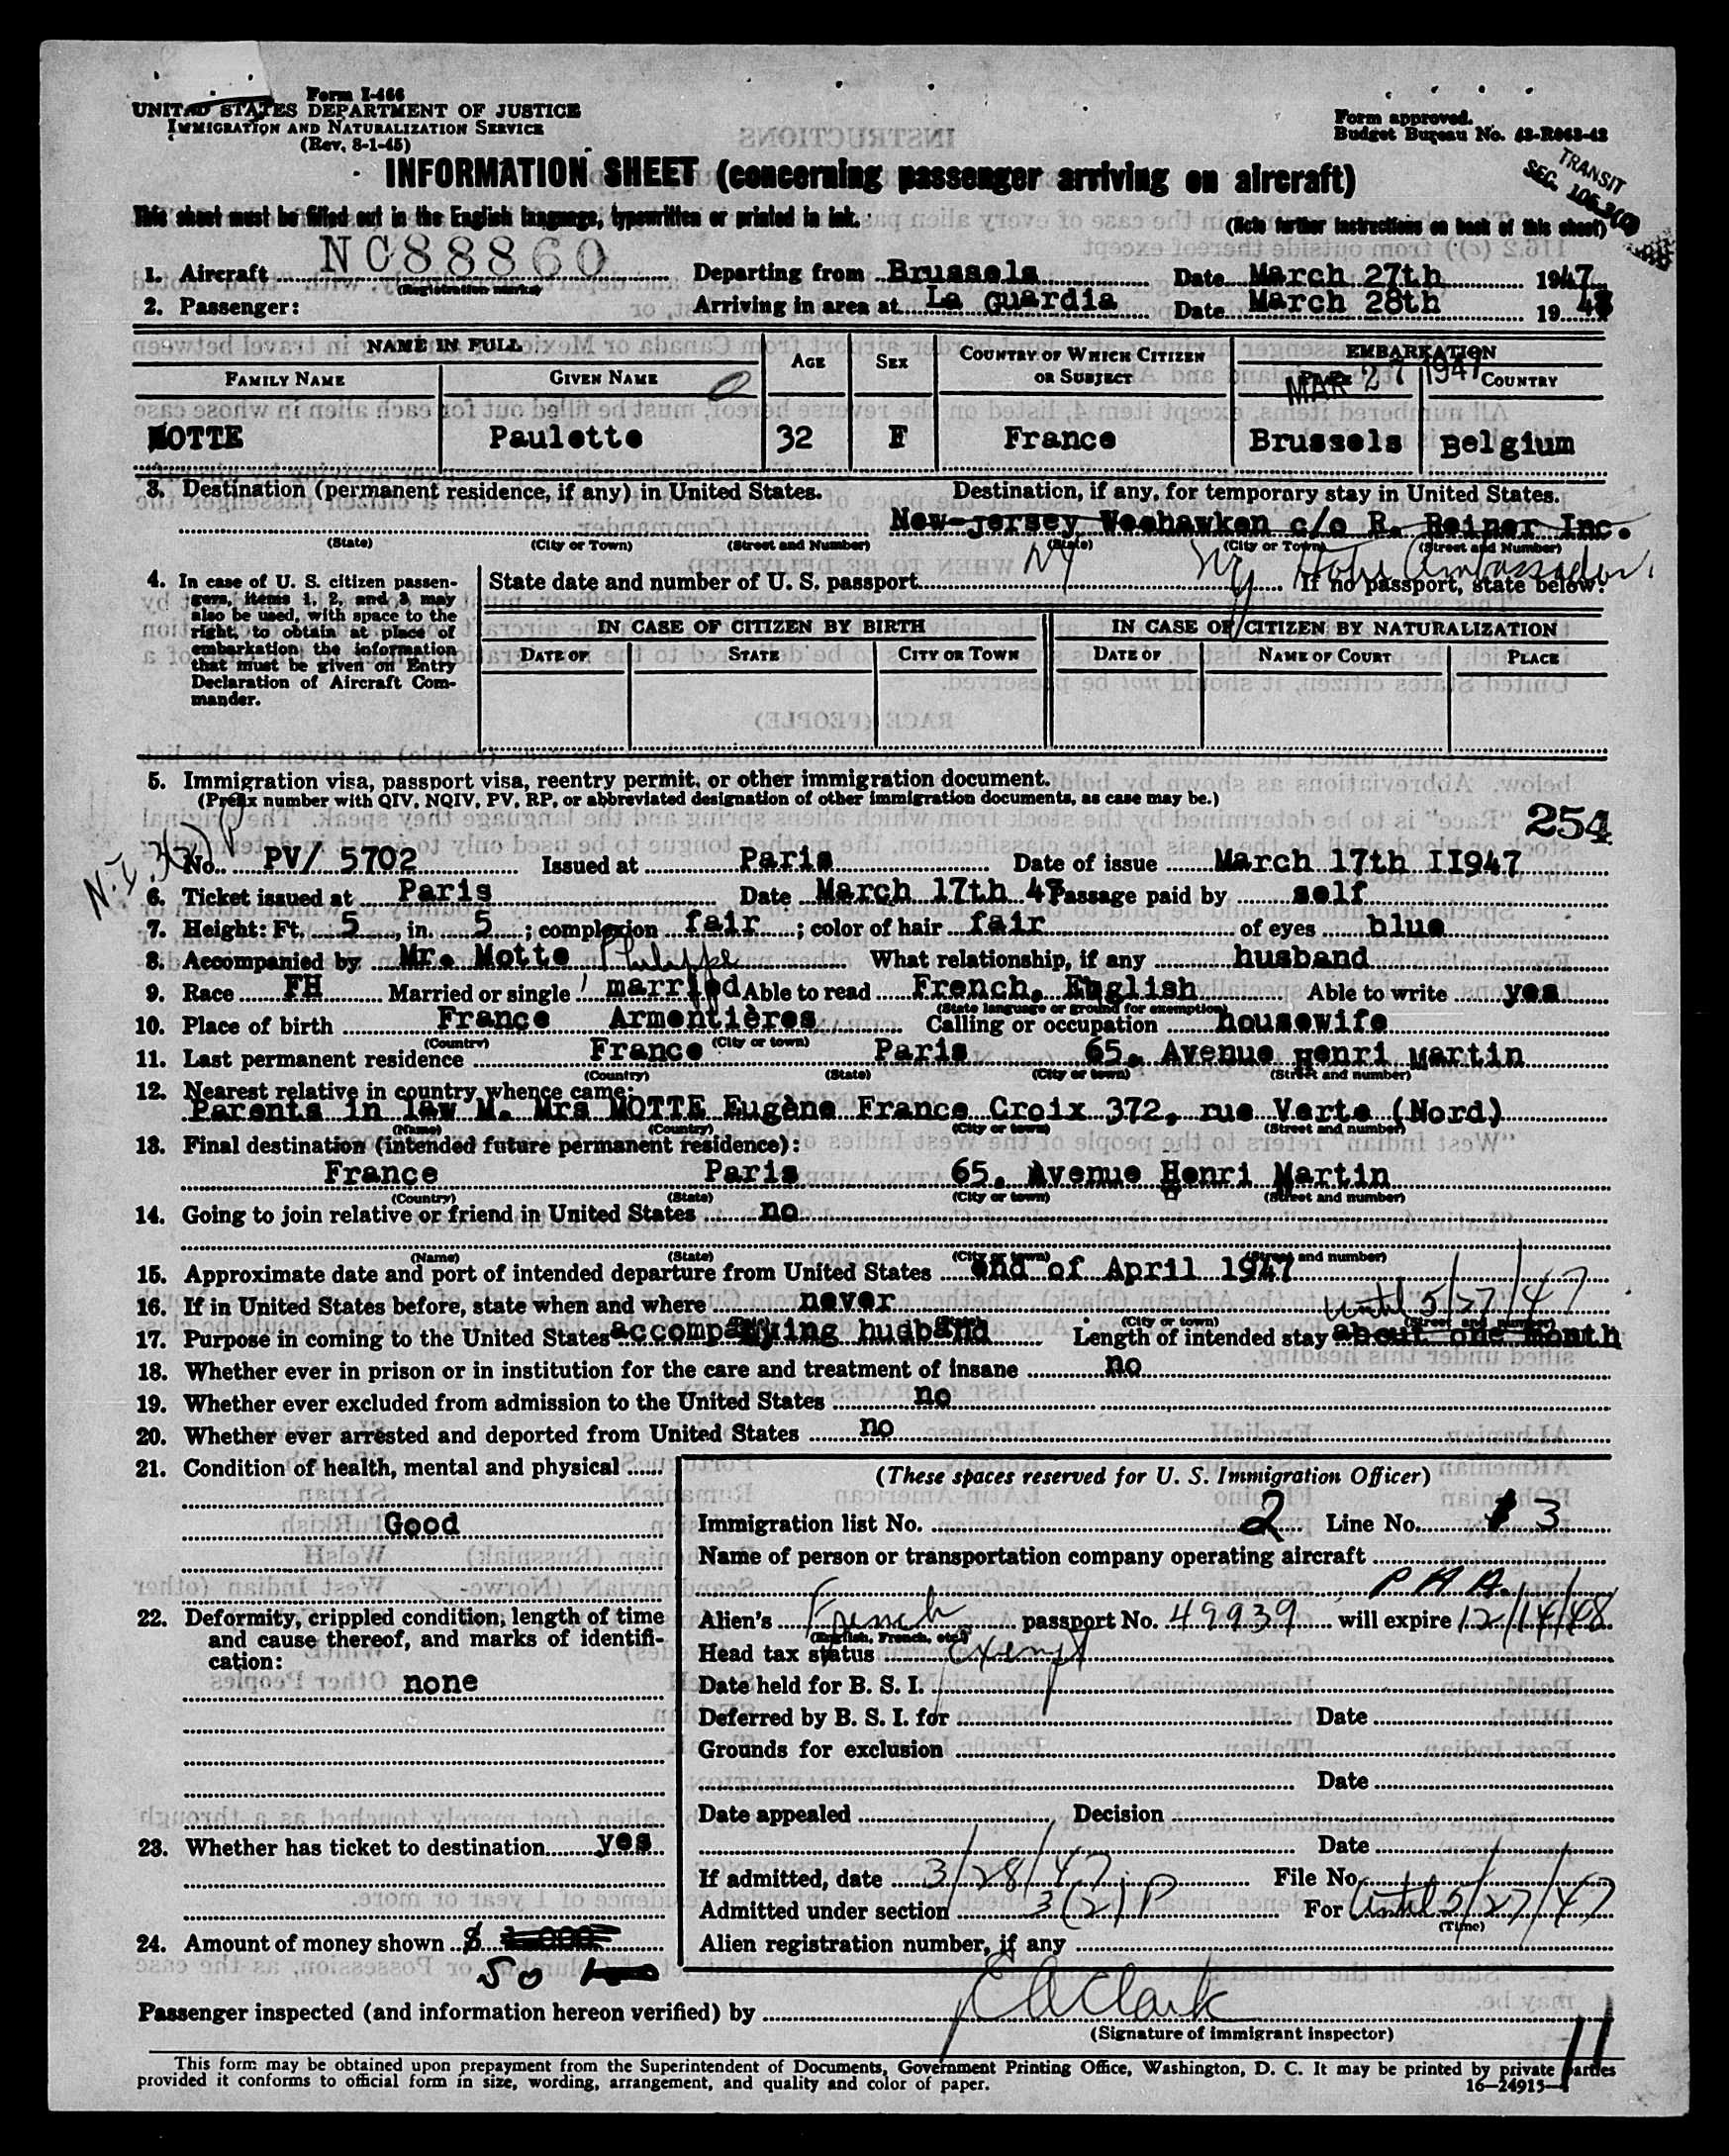 Form I-466
UNITED STATES DEPARTMENT OF JUSTICE
IMMIGRATION AND NATURALIZATION SERVICE
(Rev. 8-1-45)
Form approved.
Budget Bureau No. 43-R063-42
INFORMATION SHEET (concerning passenger arriving on aircraft)
TRANSIT
SEC. 106.3(C)
This sheet must be filled out in the English language, typewritten or printed in ink. (Note further instructions on back of this sheet)
1. Aircraft NC88860 Departing from Brussels Date March 27th 1947
(Registration marks)
2. Passenger: Arriving in area at La Guardia Date March 28th 19 47
NAME IN FULL AGE SEX COUNTRY OF WHICH CITIZEN OR SUBJECT EMBARKATION
FAMILY NAME GIVEN NAME MAR 27 1947 COUNTRY
MOTTE Paulette 32 F France Brussels Belgium
3. Destination (permanent residence, if any) in United States. Destination, if any, for temporary stay in United States.
New-Jersey Weehawken c/o R. Reiner Inc.
(State) (City or Town) (Street and Number) (State) (City or Town) (Street and Number)
NY NY Hotel Ambassador.
4. In case of U. S. citizen passen-
gers, items 1, 2, and 3 may
also be used, with space to the
right, to obtain at place of
embarkation the information
that must be given on Entry
Declaration of Aircraft Com-
mander.
State date and number of U. S. passport If no passport, state below:
IN CASE OF CITIZEN BY BIRTH IN CASE OF CITIZEN BY NATURALIZATION
DATE OF STATE CITY OR TOWN DATE OF NAME OF COURT PLACE
5. Immigration visa, passport visa, reentry permit, or other immigration document.
(Prefix number with QIV, NQIV, PV, RP, or abbreviated designation of other immigration documents, as case may be.)
254
N.I. 3(2) P
No. PV/ 5702 Issued at Paris Date of issue March 17th II947
6. Ticket issued at Paris Date March 17th 47 Passage paid by self
7. Height: Ft. 5, in. 5; complexion fair; color of hair fair of eyes blue
8. Accompanied by Mr. Motte Philippe What relationship, if any husband
9. Race FH Married or single married Able to read French, English Able to write yes
(State language or ground for exemption)
10. Place of birth France Armentières Calling or occupation housewife
(Country) (City or town)
11. Last permanent residence France Paris 65, Avenue Henri Martin
(Country) (State) (City or town) (Street and number)
12. Nearest relative in country whence came:
Parents in law M. Mrs MOTTE Eugène France Croix 372, rue Verte (Nord)
(Name) (Country) (City or town) (Street and number)
13. Final destination (intended future permanent residence):
France Paris 65, Avenue Henri Martin
(Country) (State) (City or town) (Street and number)
14. Going to join relative or friend in United States no
(Name) (State) (City or town) (Street and number)
15. Approximate date and port of intended departure from United States end of April 1947
16. If in United States before, state when and where never until 5/27/47
(City or town) (Street and number)
17. Purpose in coming to the United States accompanying husband Length of intended stay about one month
18. Whether ever in prison or in institution for the care and treatment of insane no
19. Whether ever excluded from admission to the United States no
20. Whether ever arrested and deported from United States no
21. Condition of health, mental and physical
Good
22. Deformity, crippled condition, length of time
and cause thereof, and marks of identifi-
cation:
none
23. Whether has ticket to destination yes
24. Amount of money shown $
50
(These spaces reserved for U. S. Immigration Officer)
Immigration list No. 2 Line No. 3
Name of person or transportation company operating aircraft
P A A.
Alien's French passport No. 49939 will expire 12/14/48
(English, French, etc.)
Head tax status Exempt
Date held for B. S. I.
Deferred by B. S. I. for Date
Grounds for exclusion
Date
Date appealed Decision
Date
If admitted, date 3/28/47 File No.
Admitted under section 3(2) P For Until 5/27/47
(Time)
Alien registration number, if any
Passenger inspected (and information hereon verified) by C A Clark
(Signature of immigrant inspector)
11
This form may be obtained upon prepayment from the Superintendent of Documents, Government Printing Office, Washington, D. C. It may be printed by private parties
provided it conforms to official form in size, wording, arrangement, and quality and color of paper. 16—24915-1